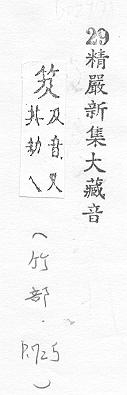 29精嚴新集大藏音
笈
及音又
其劫
(竹部.
P.725)